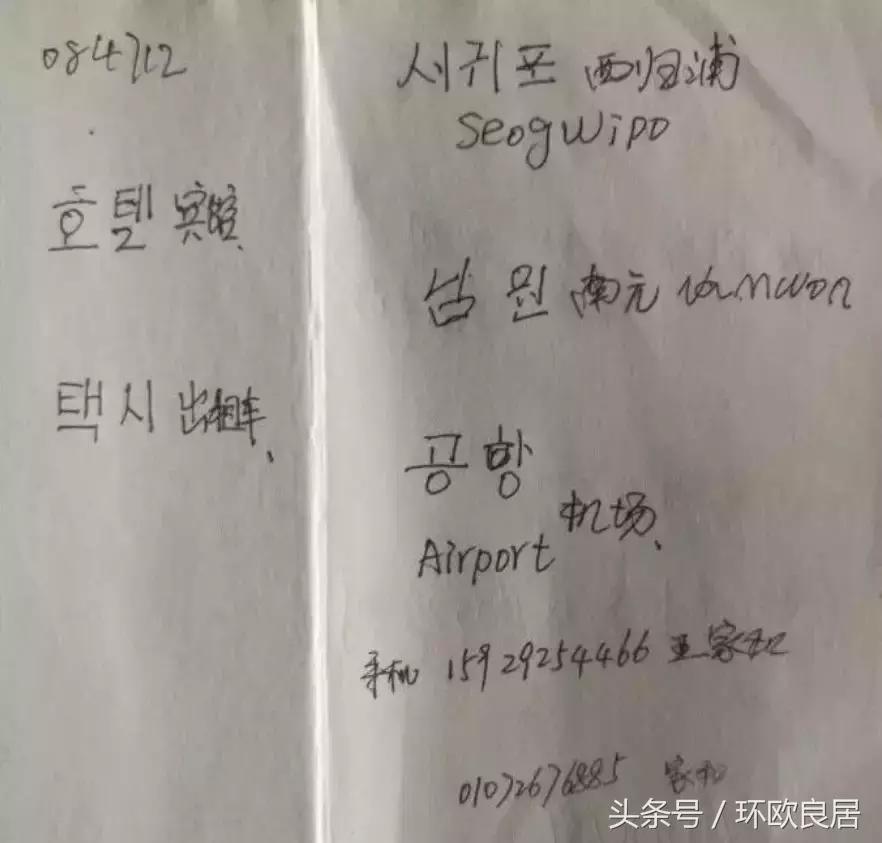 084712
호텔 宾馆、
택시 出租车、
서귀포 西归浦
Seogwipo
남원 南元 Namwon
공항
机场、
Airport
手机 15929254466 王家和
01072676885 家和
头条号 / 环欧良居